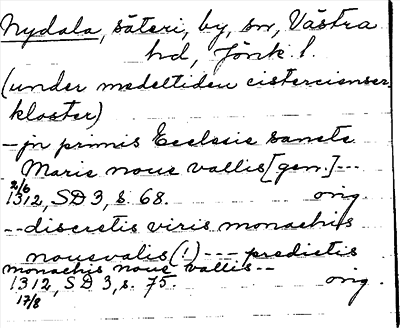 Nydala, säteri, by, sn, Västra
hd, Jönk. l.
(under medeltiden cistercienser-
kloster)
- jn primis Ecclesie sancte
Marie noue vallis [gen.] ---
2/6
1312, SD 3, s. 68. orig.
-- discretis viris monachis
nouevalis (!) --- predictis
monachis noue vallis --
1312, SD 3, s. 75. orig.
17/8